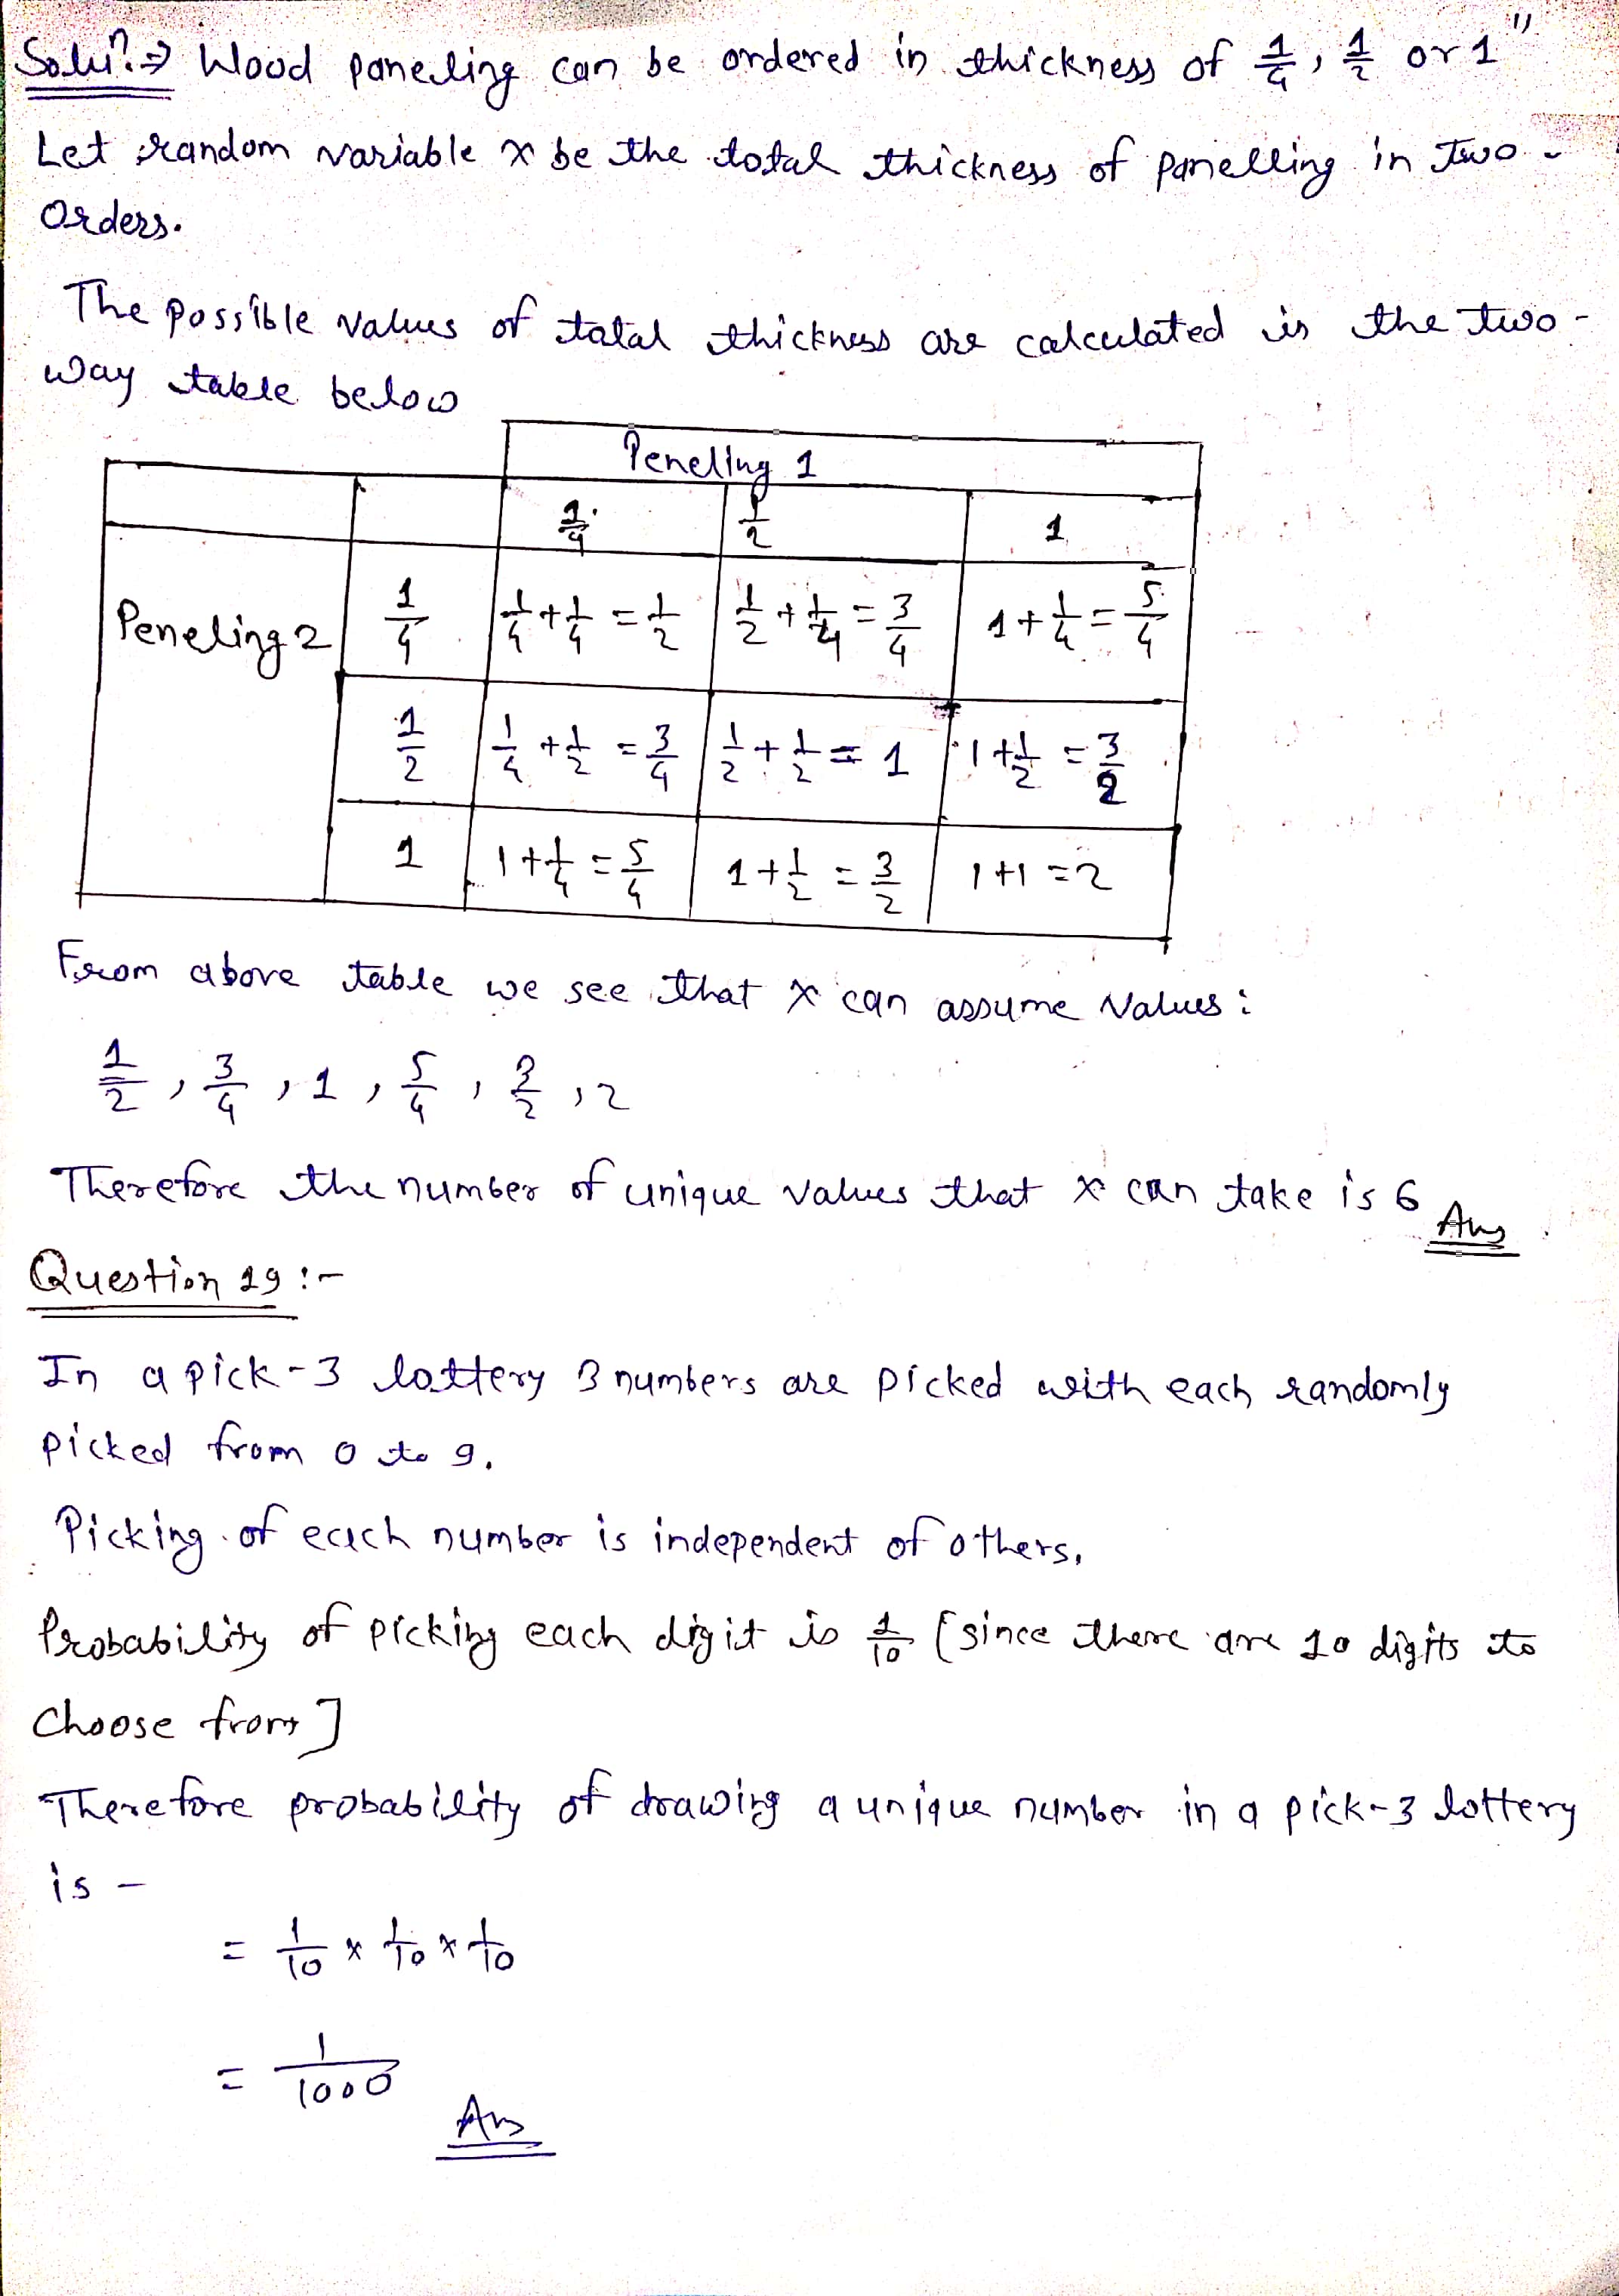 Soluⁿ.⇒ Wood paneling can be ordered in thickness of 1/4, 1/2 or 1"
Let random variable x be the total thickness of panelling in Two
Orders.
The possible values of total thickness are calculated is the two-
way table below
Peneling 1
1/4 1/2 1
Peneling 2 1/4 1/4+1/4 = 1/2 1/2+1/4 = 3/4 1+1/4 = 5/4
1/2 1/4+1/2 = 3/4 1/2+1/2 = 1 1+1/2 = 3/2
1 1+1/4 = 5/4 1+1/2 = 3/2 1+1 = 2
From above table we see that x can assume values:
1/2, 3/4, 1, 5/4, 3/2, 2
Therefore the number of unique values that x can take is 6 Ans.
Question 19 :-
In a pick-3 lottery 3 numbers are picked with each randomly
picked from 0 to 9.
Picking of each number is independent of others,
Probability of picking each digit is 1/10 [since there are 10 digits to
choose from]
Therefore probability of drawing a unique number in a pick-3 lottery
is -
= 1/10 × 1/10 × 1/10
= 1/1000
Ans